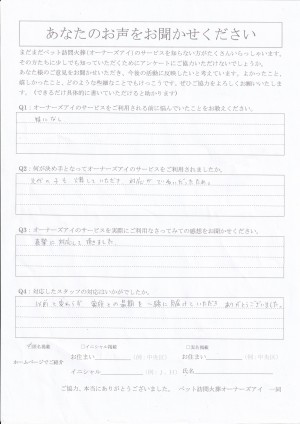 あなたのお声をお聞かせください
まだまだペット訪問火葬(オーナーズアイ)のサービスを知らない方がたくさんいらっしゃいます。
その方たちに少しでも知っていただくためにアンケートにご協力いただけないでしょうか。
あなた様のご意見をお聞かせいただき、今後の活動に反映したいと考えています。よかったこと、
嬉しかったこと、どのような些細なことでもけっこうです。ぜひご協力をよろしくお願いいたします。
(できるだけ具体的に書いていただけると助かります)
Q1:オーナーズアイのサービスをご利用される前に悩んでいたことをお教えください。
特になし
Q2:何が決め手となってオーナーズアイのサービスをご利用されましたか。
対応がていねいだったため。
Q3:オーナーズアイのサービスを実際にご利用なさってみての感想をお聞かせください。
真摯に対応して頂きました
Q4:対応したスタッフの対応はいかがでしたか。
以前と変わらず
一緒に
ありがとうございました。
□イニシャル掲載
ホームページでご紹介
お住まい
(例:中央区)
お住まい
(例:中央区)
イニシャル
氏名
ご協力、本当にありがとうございました。 ペット訪問火葬オーナーズアイ 一同